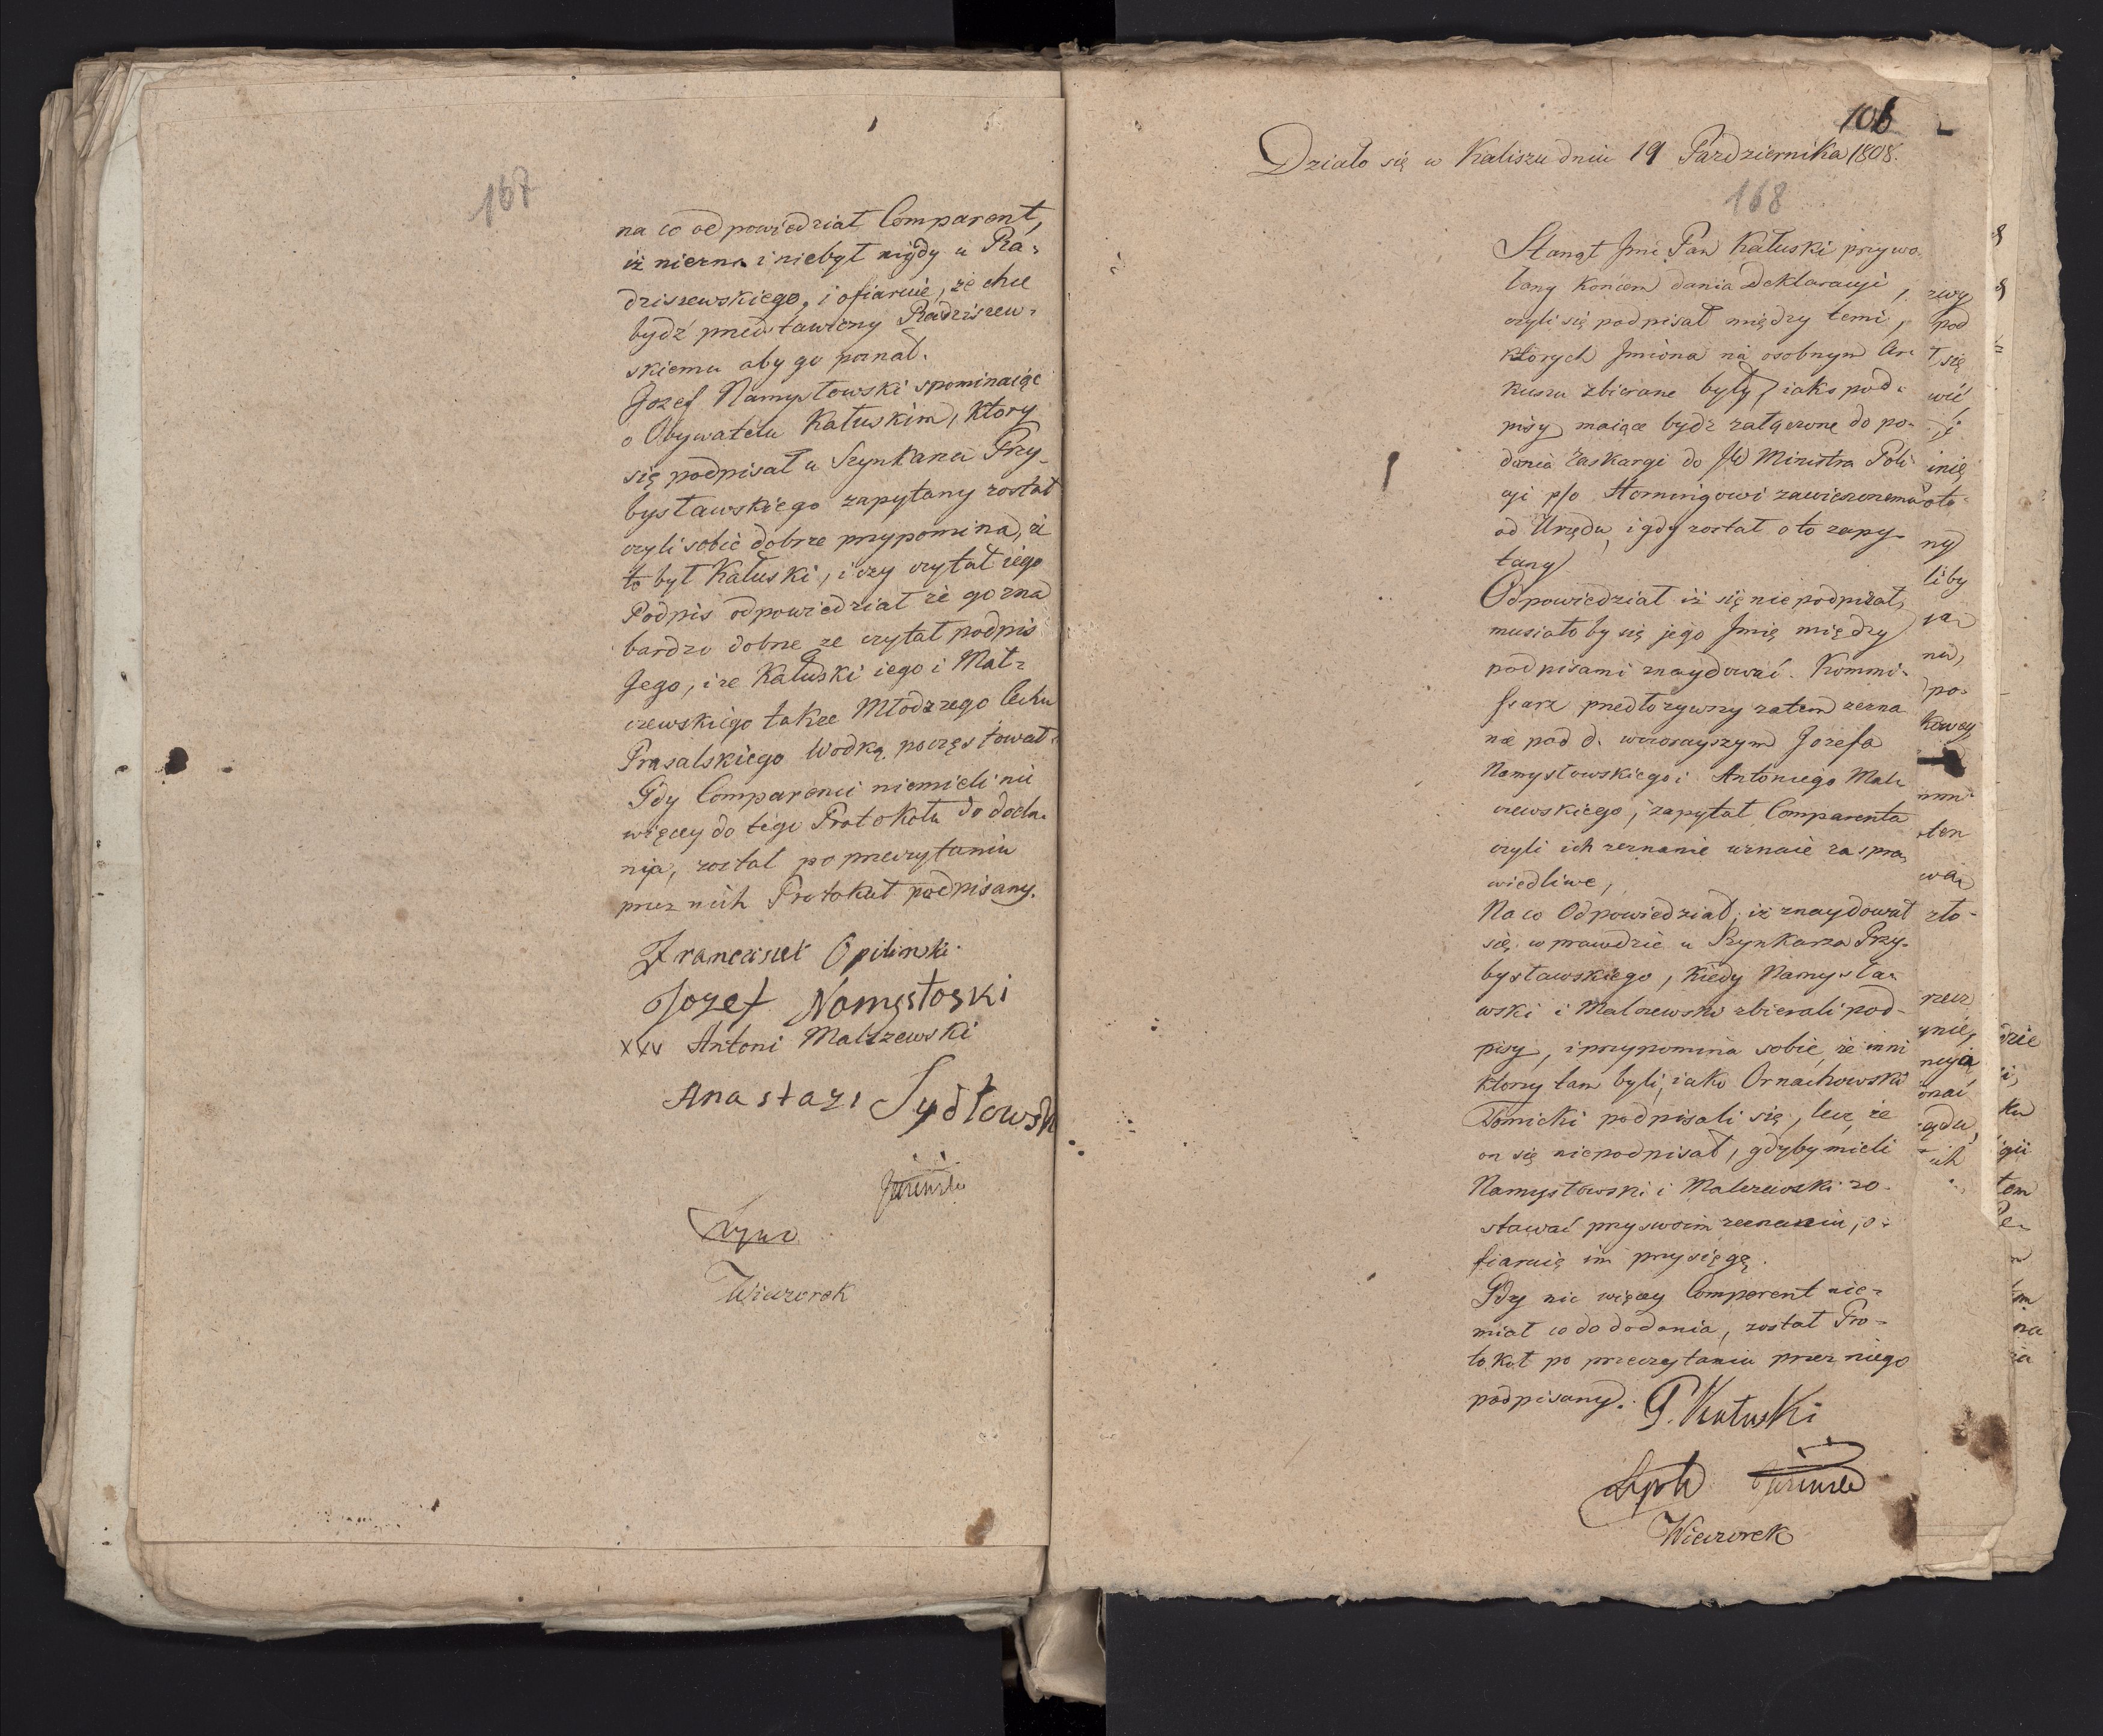 167
na co odpowiedział Comparent,
iż niezna i niebył nigdy u Ra-
dziszewskiego, i ofiaruie, że chce
bydź przedstawiony Radziszew-
skiemu aby go poznał.
Jozef Namysłowski spominaiąc
o Obywatelu Kałuskim, ktory
się podpisał u Szynkarza Przy-
bysławskiego zapytany został
czyli sobie dobrze przypomina, że
to był Kałuski, i czy czytał iego
Podpis odpowiedział że go zna
bardzo dobrze ze czytał podpis
Jego, i ze Kałuski iego i Mal-
czewskiego takze Młodzego Cechu
Prasalskiego Wodką poczęstował.
Gdy Comparenci niemieli nic
więcey do tego Protokołu do doda-
nia, został po przeczytaniu
przez nich Protokuł podpisany.
Franciszek Opilinski
Jozef Namysłoski
xxx Antoni Malczewski
Anastazi Sydłowski
Wieczorek
106
Działo się w Kaliszu dniu 19 Października 1808.
168
Stanął Jmć Pan Kałuski przywo-
łany końcem dania Deklaracyi,
czyli się podpisał między temi,
ktorych Jmiona na osobnym Ar-
kuszu zbierane były, iako pod-
pisy maiące bydz załączone do po-
dania zaskargi do JW Ministra Poli-
cyi p/o Hornigowi zawieszonemu
od Urzędu, i gdy został o to zapy-
tany
Odpowiedział iż się nie podpisał,
musiało by się jego Jmię między
podpisami znaydować. Kommi-
ssarz przedłożywszy zatem zezna
nie pod d. wczorayszym Jozefa
Namysłowskiego i Antoniego Mal-
czewskiego, zapytał Comparenta
czyli ich zeznanie uznaie za spra-
wiedliwe,
Na co Odpowiedział, iż znaydował
się w prawdzie u Szynkarza Przy-
bysławskiego, kiedy Namysło-
wski i Malczewski zbierali pod-
pisy, i przypomina sobie, że inni
ktorzy tam byli, iako Ornachowski
Tomicki podpisali się, lecz, że
on się niepodpisał, gdyby mieli
Namysłowski i Malczewski zo-
stawać przy swoim zeznaniu, o-
fiaruię im przysięgę.
Gdy nic więcey Comparent nie-
miał co do dodania, został Pro-
tokuł po przeczytaniu przez niego
podpisany.
P. Kałuski
Wieczorek